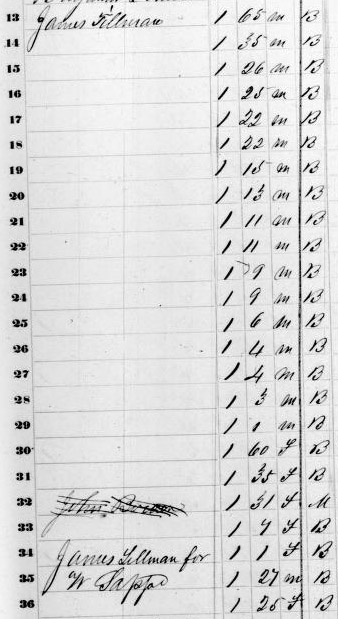 13 James Tillman 1 65 m B
14 1 35 m B
15 1 26 m B
16 1 25 m B
17 1 22 m B
18 1 22 m B
19 1 15 m B
20 1 13 m B
21 1 11 m B
22 1 11 m B
23 1 9 m B
24 1 9 m B
25 1 6 m B
26 1 4 m B
27 1 4 m B
28 1 3 m B
29 1 1 m B
30 1 60 f B
31 1 35 f B
32 John 1 31 f M
33 1 7 f B
34 James Tillman for 1 1 f B
35 W Sapp 1 27 m B
36 1 25 f B